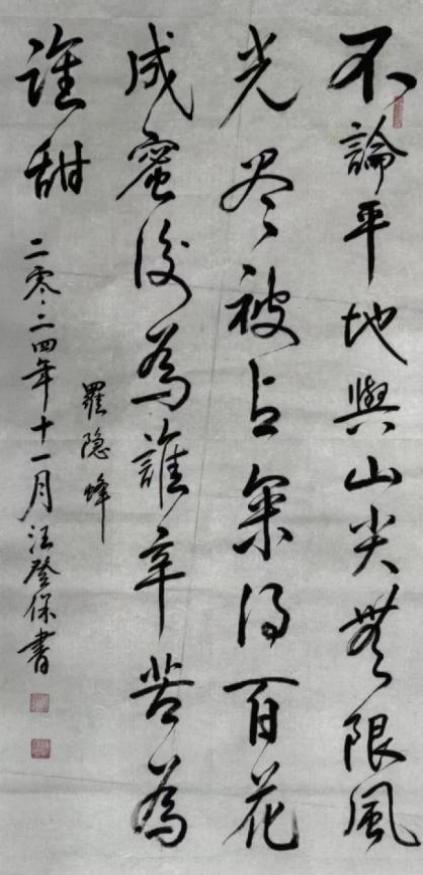 不論平地與山尖無限風
光盡被占采得百花
成蜜後為誰辛苦為
誰甜
羅隐蜂
二零二四年十一月汪登保書